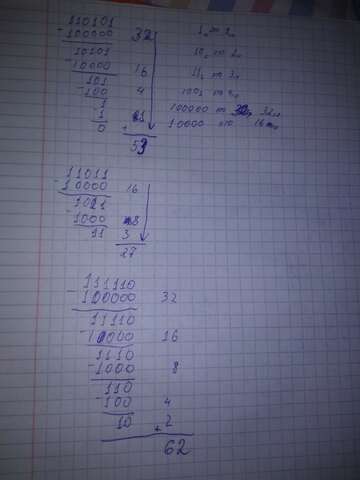 110101
- 100000 32
10101
- 10000 16
101
- 100 4
1
1 1
0 +
53
100000 32
10000 16
11011
- 10000 16
1011
- 1000 8
11 3
27
111110
- 100000 32
11110
- 10000 16
1110
- 1000 8
110
- 100 4
10 + 2
62